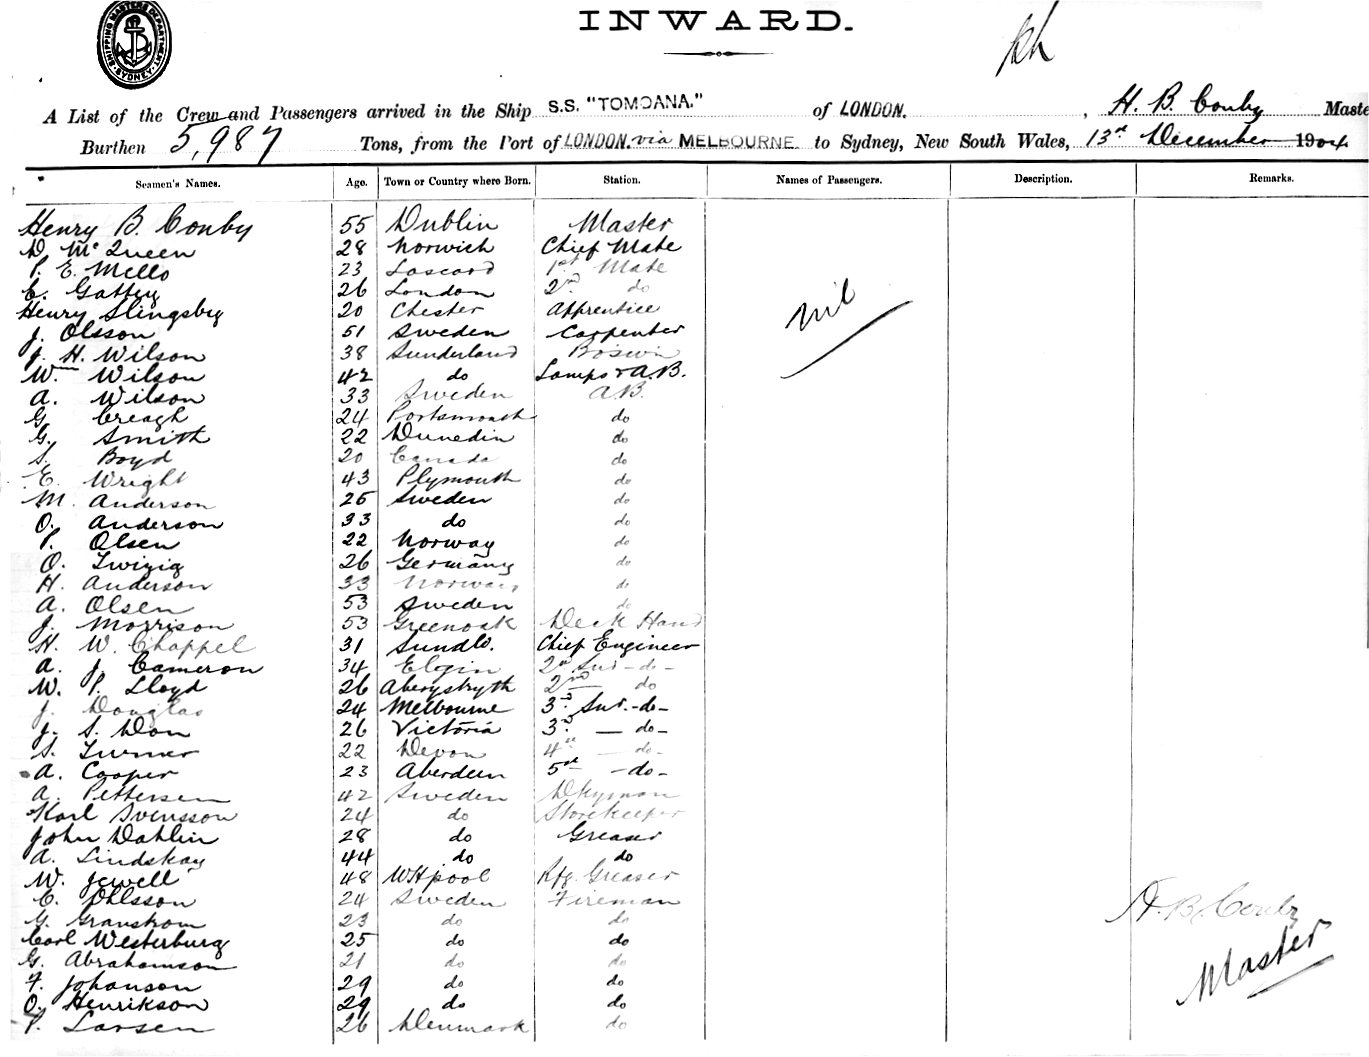 INWARD.
SHIPPING MASTERS DEPARTMENT SYDNEY
A List of the Crew and Passengers arrived in the Ship S.S. "TOMOANA." of LONDON. , H. B. Conby Maste
Burthen 5,987 Tons, from the Port of LONDON. via MELBOURNE. to Sydney, New South Wales, 13th December 1904
Seamen's Names. Age. Town or Country where Born. Station. Names of Passengers. Description. Remarks.
Henry B. Conby 55 Dublin Master
D McQueen 28 Norwich Chief Mate
P. E. Mello 23 Lascard 1st Mate
E. Gaffey 26 London 2nd do
Henry Slingsby 20 Chester Apprentice
nil
J. Olsson 51 Sweden Carpenter
J. H. Wilson 38 Sunderland Bosun
W. Wilson 42 do Lamps & A.B.
A. Wilson 33 Sweden A.B.
G. Creagh 24 Portsmouth do
G. Smith 22 Dunedin do
S. Boyd 20 Canada do
E. Wright 43 Plymouth do
M. Anderson 25 Sweden do
O. Anderson 33 do do
P. Olsen 22 Norway do
O. 26 Germany do
H. Anderson 33 Norway do
A. Olsen 53 Sweden do
J. Morrison 53 Greenoak Deck Hand
H. W. Chappel 31 Sundld. Chief Engineer
A. J. Cameron 34 Elgin 2nd -do-
W. P. Lloyd 26 Aberystryth 2nd do
J. Douglas 24 Melbourne 3rd -do-
J. S. Don 26 Victoria 3rd - do-
S. Turner 22 Devon 4th - do-
A. Cooper 23 Aberdeen 5th -do-
A. Pettersen 42 Sweden Dkyman
Karl Svensson 24 do Storekeeper
John Dahlin 28 do Greaser
A. Lindskay 44 do do
W. Jewell 48 WHpool Rfg. Greaser
C. Ohlsson 24 Sweden Fireman
H. B. Conby
G. Granstrom 23 do do
Carl Westerburg 25 do do
Master
G. Abrahamson 21 do do
F. Johanson 29 do do
O. Henrikson 29 do do
P. Larsen 26 Denmark do